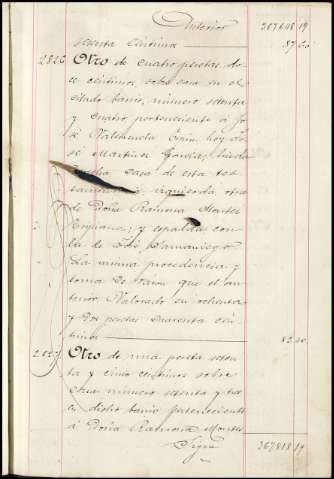 Anterior 367.648 19
sesenta céntimos 87 60
2826 Otro de cuatro pesetas do-
ce céntimos, sobre casa en el
citado barrio, número setenta
y cuatro perteneciente á Jo-
sé Valenzuela hoy Jo-
sé Martinez García; linda
derecha casa de esta tes-
tamentaría; izquierda, otra
de Doña Ramona Montes
y espalda con
la de José Samaniego.
La misma procedencia y
toma de razon que el an-
terior. Valorado en ochenta
y dos pesetas cuarenta cén-
timos 82 40
2827 Otro de una peseta seten-
ta y cinco céntimos sobre
otra número setenta y tres
en dicho barrio perteneciente
á Doña Ramona Montes
Sigue 367.818 19